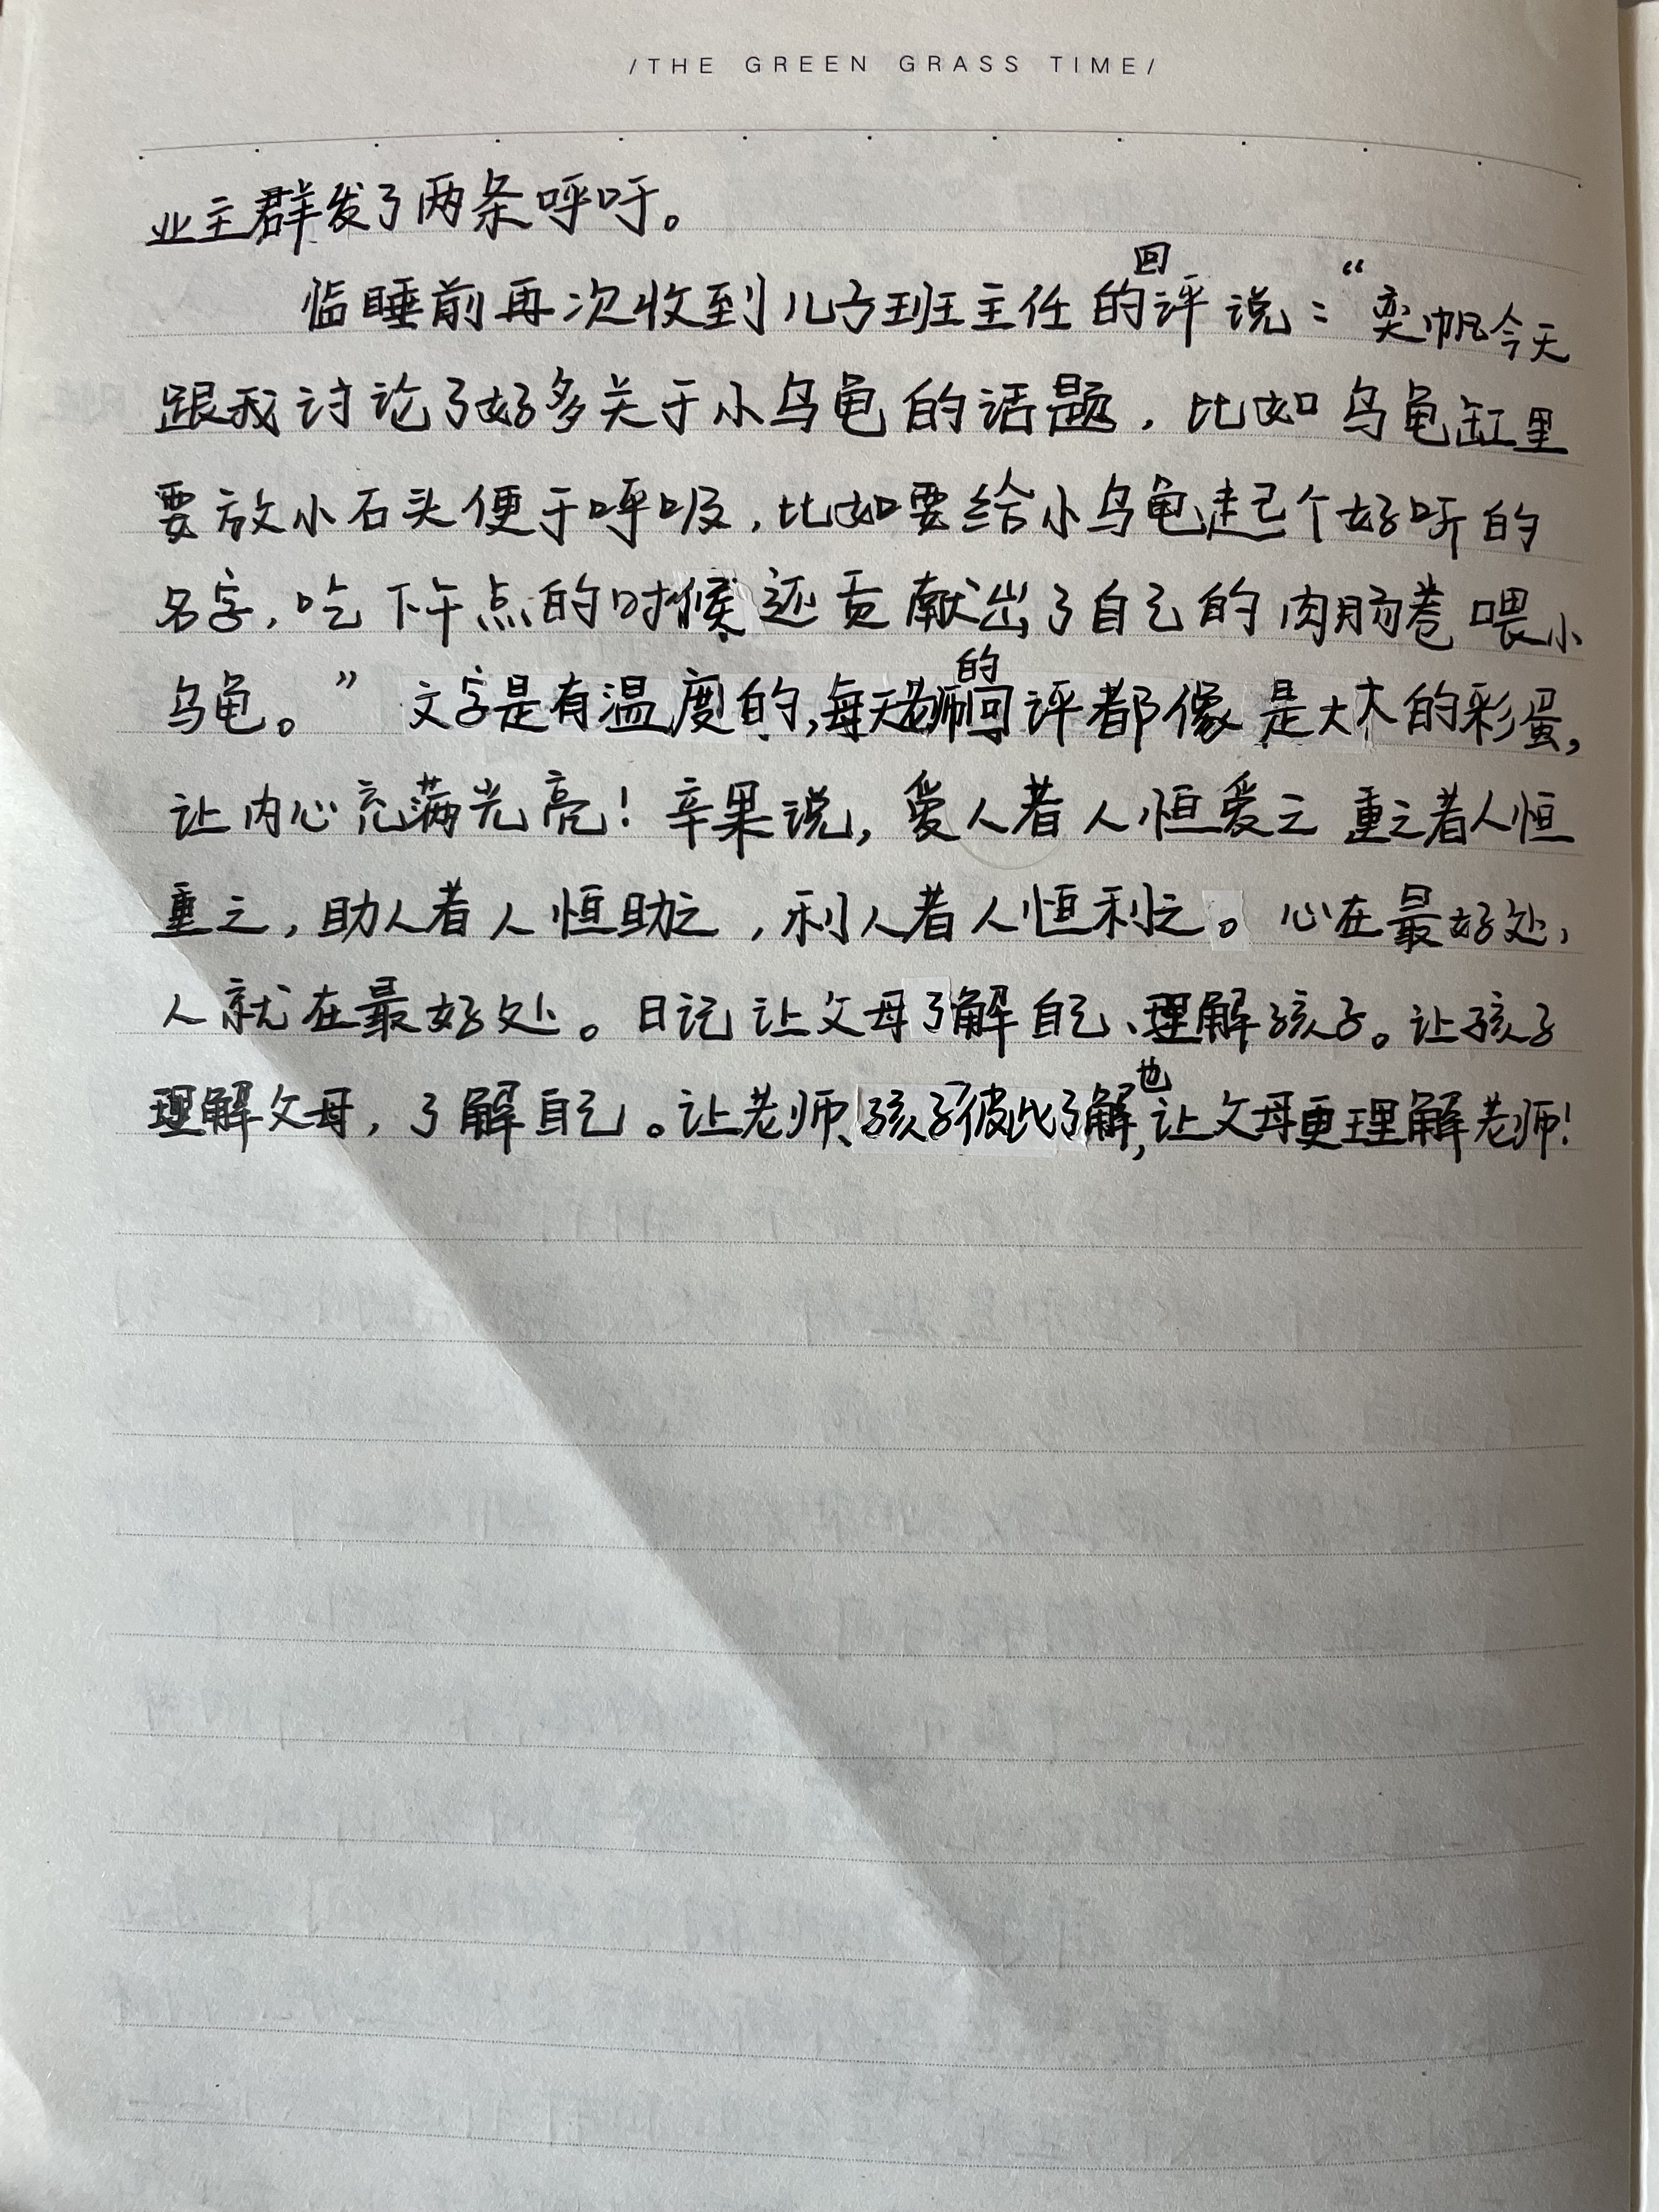 /THE GREEN GRASS TIME/
业主群发了两条呼吁。
临睡前再次收到儿子班主任的回评说：“奕帆今天
跟我讨论了好多关于小乌龟的话题，比如乌龟缸里
要放小石头便于呼吸，比如要给小乌龟起个好听的
名字，吃下午点的时候还贡献出了自己的肉肠卷喂小
乌龟。”文字是有温度的，每天老师的回评都像是大大的彩蛋，
让内心充满光亮！辛果说，爱人者人恒爱之 重之者人恒
重之，助人者人恒助之，利人者人恒利之。心在最好处，
人就在最好处。日记让父母了解自己、理解孩子。让孩子
理解父母，了解自己。让老师、孩子彼此了解，也让父母更理解老师！